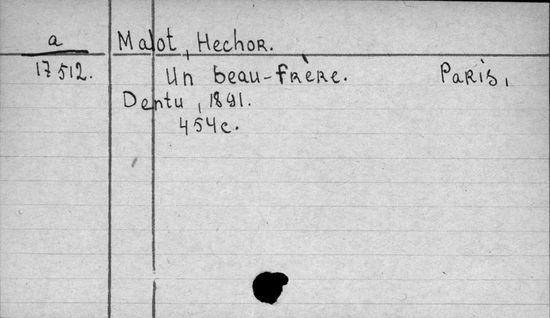 a
17512.
Malot, Hechor.
Un beau-frère. Paris,
Dentu, 1891.
454c.